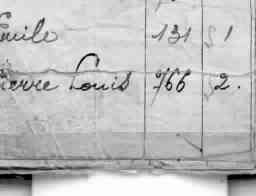 Emile 131 1
Pierre Louis 766 2.